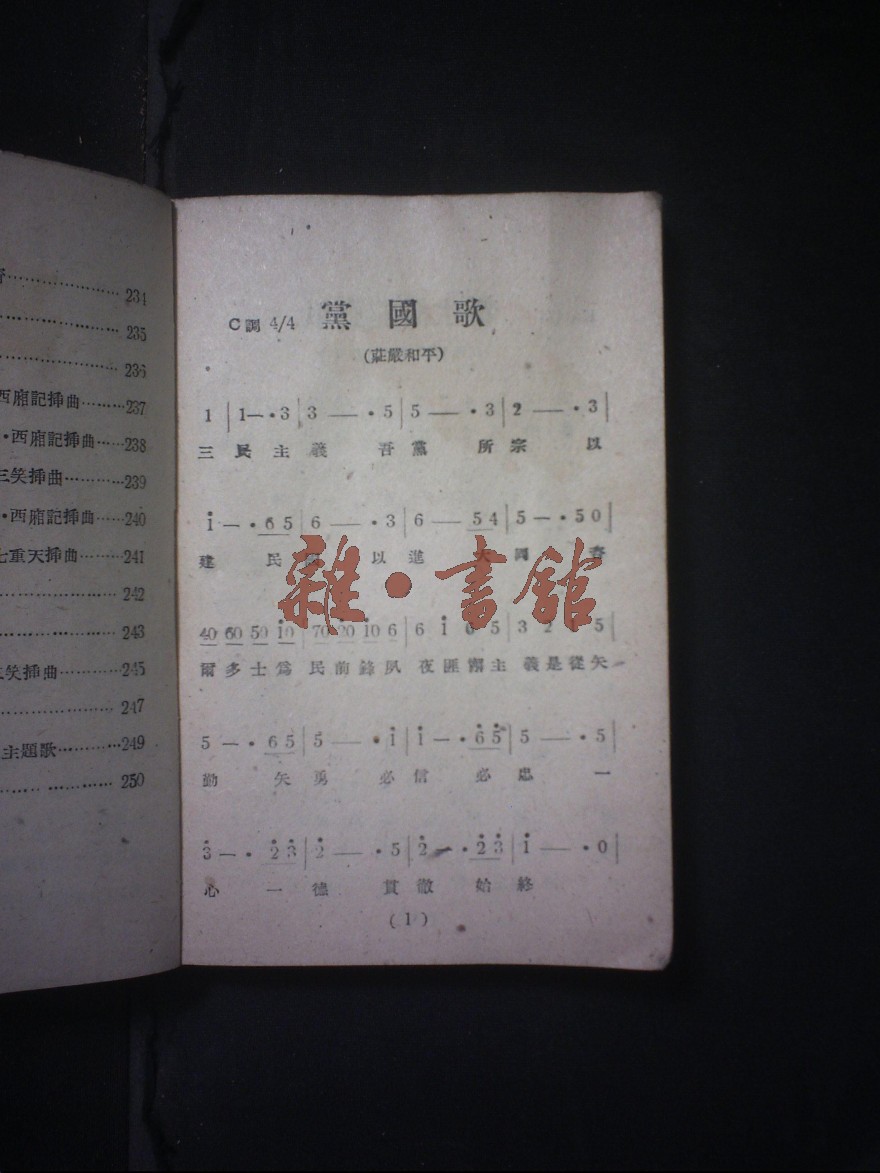 234
235
236
西廂記揷曲………237
·西廂記揷曲……238
三笑揷曲…………239
·西廂記揷曲……240
七重天揷曲………241
242
243
笑揷曲…………245
247
主題歌…………249
250
C調 4/4 黨國歌
(莊嚴和平)
1 | 1—·3 | 3 — ·5 | 5 — ·3 | 2 — ·3 |
三民主義 吾黨所宗 以
i̇ — · 6 5 | 6 — ·3 | 6 — 5 4 | 5 — ·5 0 |
建 民 以進
40 60 50 i̇0
爾多士爲 民前鋒夙夜匪 主義是從矢
5 — · 6 5 | 5 — ·i̇ | i̇ — · 6̇ 5̇ | 5 — ·5 |
勤 矢勇 必信 必忠 一
3̇ — · 2̇ 3̇ | 2̇ — ·5 | 2̇ — · 2̇ 3̇ | i̇ — ·0 |
心 一德 貫徹 始終
(1)
雜·書館